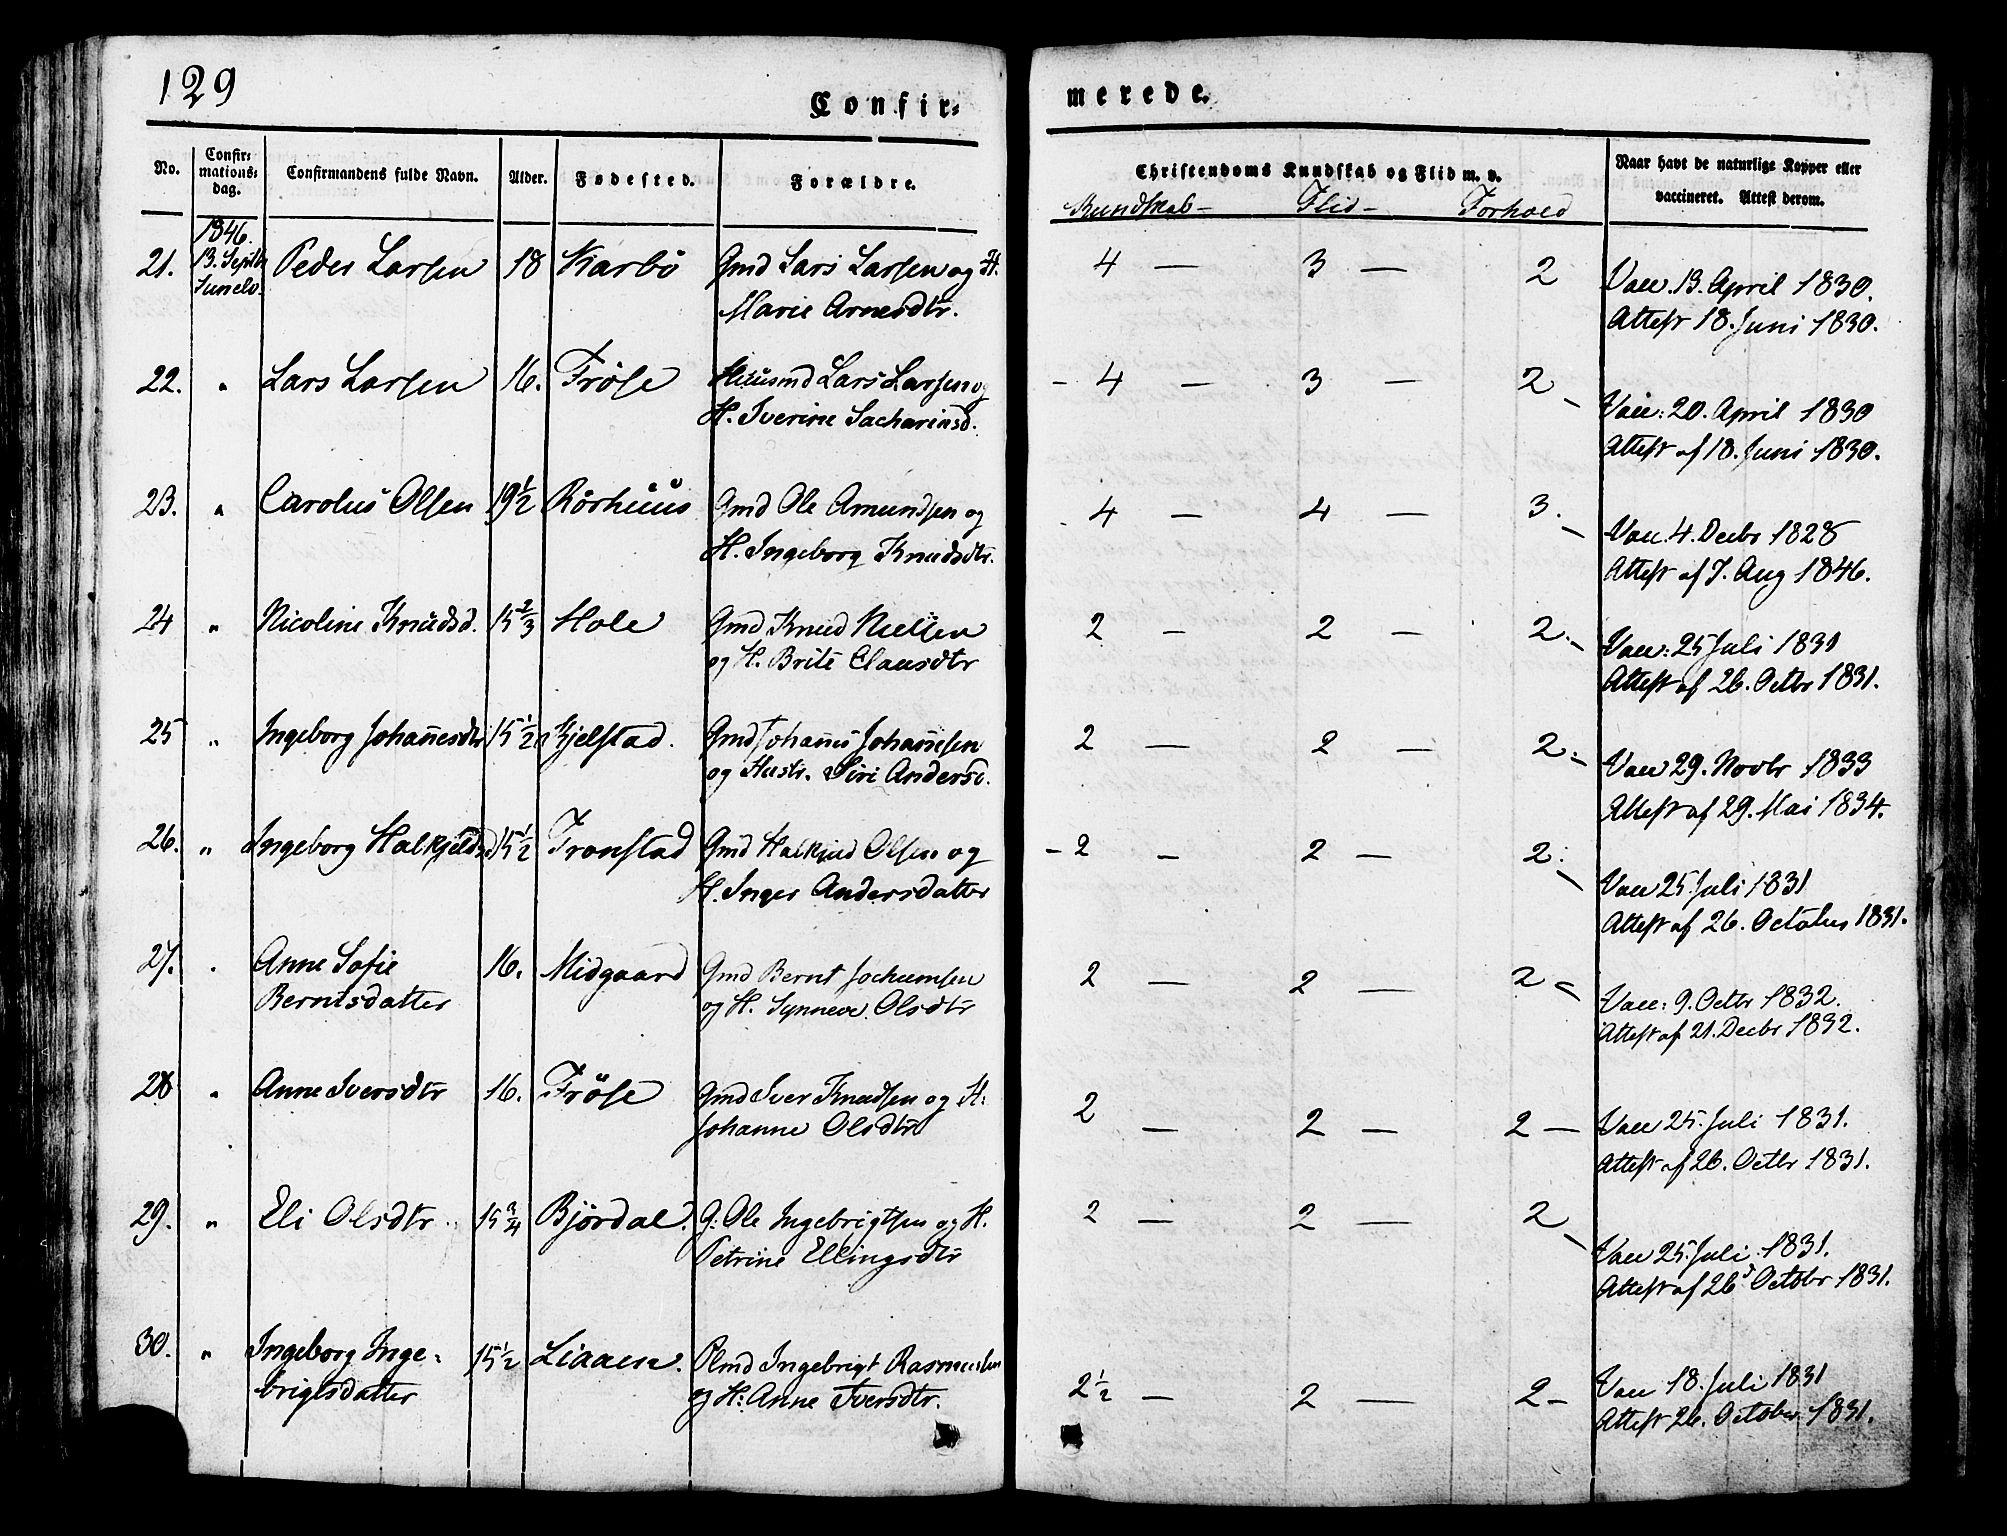 129
Confir-
merede.
No.
Confir-
mations-
dag.
Confirmandens fulde Navn.
Alder.
Fødested.
Forældre.
Christendoms Kundskab og Flid m. v.
Kundskab – Flid – Forhold
Naar havt de naturlige Kopper eller
vaccineret. Attest derom.
1846.
21. 13. Septbr Peder Larsen 18 Karbö Gmd Lars Larsen og H. 4 — 3 — 2 Vacc. 13. April 1830.
Sunelv. Marie Arnesdtr. Attest 18. Juni 1830.
22. " Lars Larsen 16. Fröse Huusmd Lars Larsen og – 4 — 3 — 2 – Vacc: 20. April 1830
H. Iverine Sachariasd. Attest af 18. Juni 1830.
23. " Carolus Olsen 19½ Rörhuus Gmd Ole Amundsen og 4 — 4 — 3. – Vacc. 4. Decbr 1828
H. Ingeborg Knudsdtr. Attest af 7. Aug 1846.
24 " Nicoline Knudsd. 15⅔ Hole Gmd Knud Nielsen 2 — 2 — 2. – Vacc: 25 Juli 1831
og H. Brite Clausdtr Attest af 26. Octbr 1831.
25 " Ingeborg Johannesdtr 15½ Kjelstad. Gmd Johannes Johannesen 2 — 2 — 2. – Vacc 29. Novbr 1833
og Hustr. Siri Andersd. Attest af 29. Mai 1834.
26. " Ingeborg Halkjeldsd 15½ Tronstad Gmd Halkjeld Olsen og – 2 — 2 — 2. – Vacc 25. Juli 1831
H. Inger Andersdatter Attest af 26. October 1831.
27. " Anne Sofie 16. Midgaard Gmd Bernt Jochumsen 2 — 2 — 2 – Vacc: 9. Octbr 1832.
Berntsdatter og H. Synneve Olsdtr Attest af 21. Decbr 1832.
28 " Anne Iversdtr 16. Fröse Gmd Iver Knudsen og H. 2 — 2 — 2 – Vacc 25. Juli 1831.
Johanne Olsdtr Attest af 26. Octbr 1831.
29. " Eli Olsdtr. 15¾ Bjørdal. G: Ole Ingebrigtsen og H. 2 — 2 — 2 – Vacc 25. Juli 1831.
Petrine Ellingsdtr Attest af 26 Octobr 1831.
30. " Ingeborg Inge- 15½ Liaaen. Plmd Ingebrigt Rasmussen 2½ — 2 — 2 – Vacc 18. Juli 1831
brigtsdatter og H: Anne Iversdtr. Attest 26. October 1831.